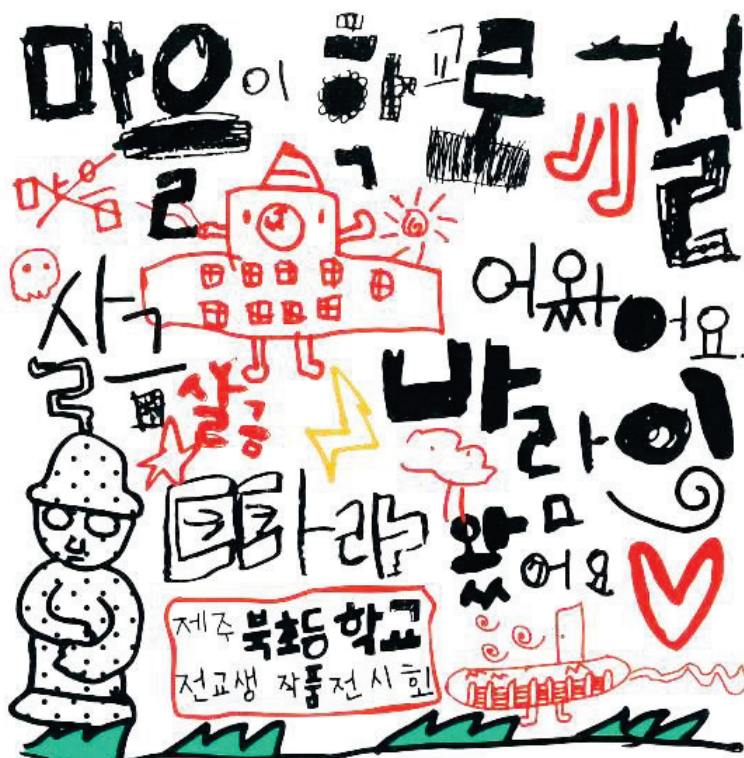 마을이 학교로 걸
어왔어요.
살금 살금
바람이
따라왔어요
제주북초등학교
전교생 작품전시회